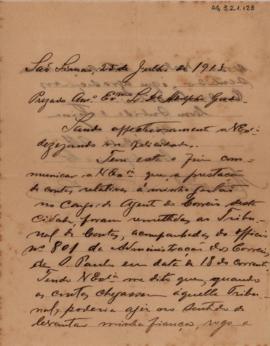 AG 3.2.1.128
São Simão, 20 de Julho de 1913.
Prezado Amº Exº Sr. Dr. Adolpho Gordo
Saudo affectuosamente a V. Exª
dezejando-vos felicidades.
Tem este o fim com-
municar a V. Exª que a prestação
de contas, relativas á minha gestão
no Cargo de Agente do Correio desta
Cidade, foram remettidas ao Tribu-
nal de Contas, acompanhadas do officio
nº 801 da Administração dos Correios
de S. Paulo em data de 18 do corrente.
Tendo V. Exª me dito que, quando
as contas chegassem áquelle Tribu-
nal, poderia agir no sentido de
levantar minha fiança, rogo a